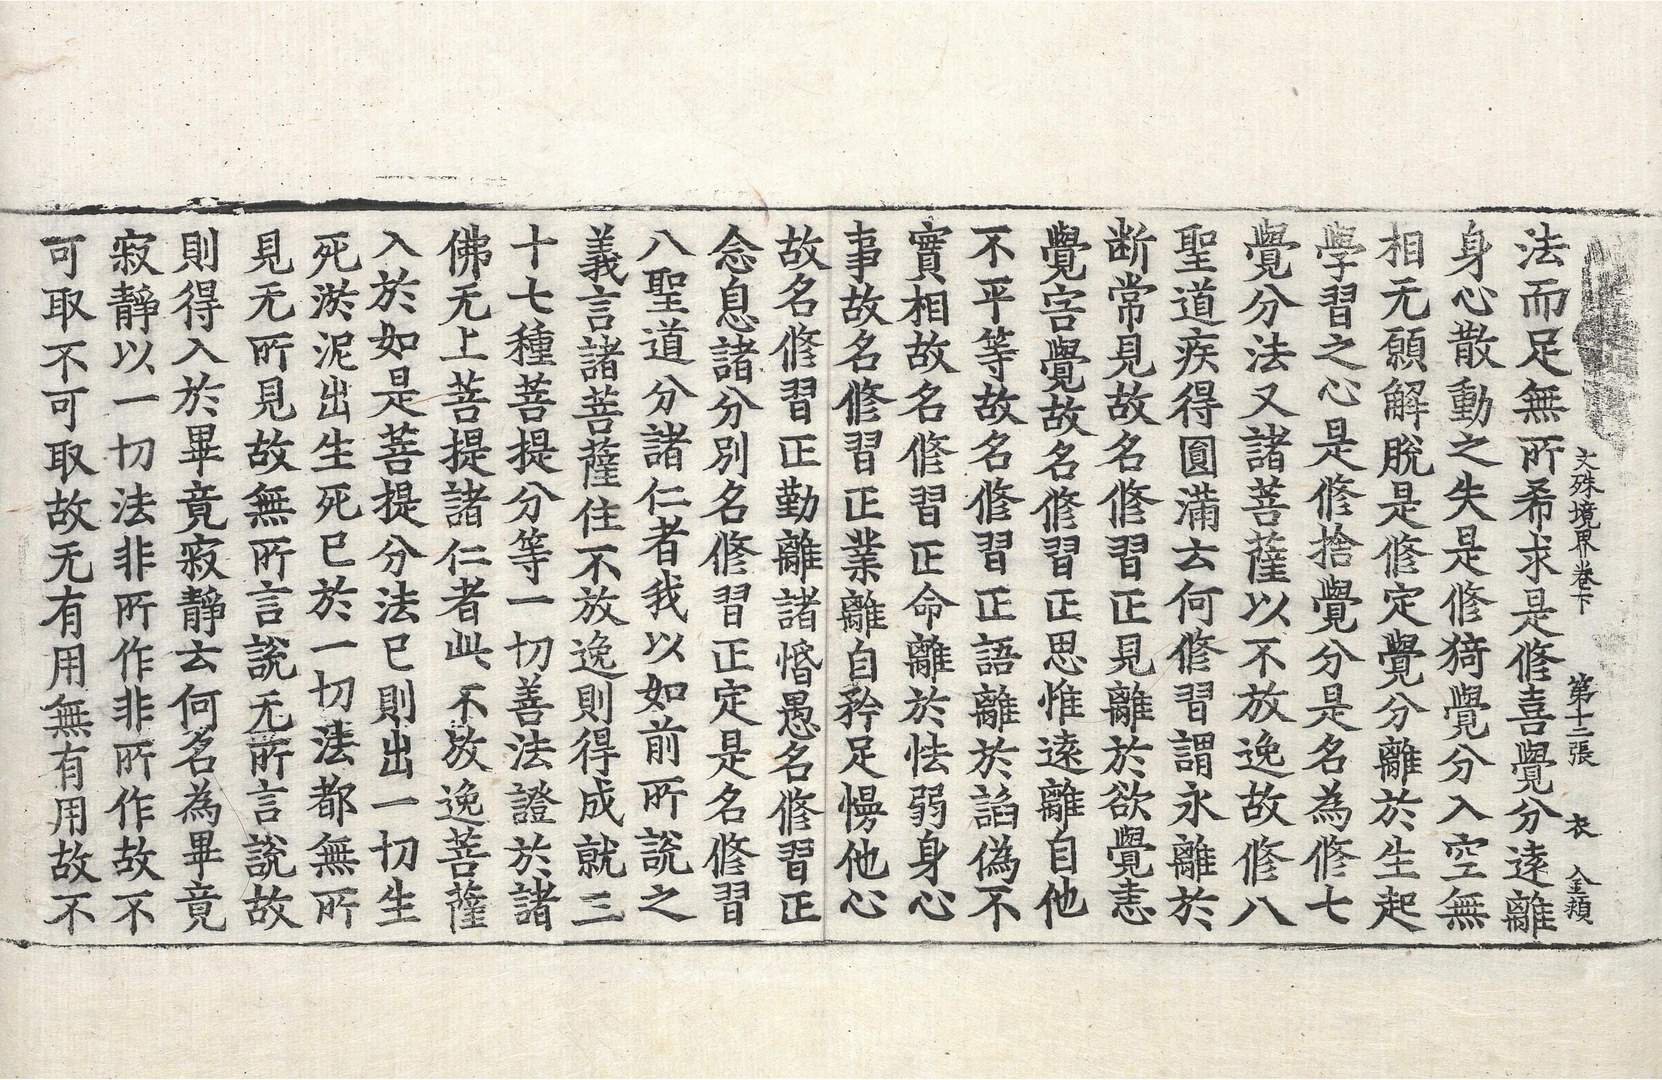 文殊境界卷下　第十二張　衣　金額
法而足無所希求是修喜覺分遠離
身心散動之失是修猗覺分入空無
相无願解脫是修定覺分離於生起
學習之心是修捨覺分是名為修七
覺分法又諸菩薩以不放逸故修八
聖道疾得圓滿云何修習謂永離於
断常見故名修習正見離於欲覺恚
覺害覺故名修習正思惟遠離自他
不平等故名修習正語離於諂偽不
實相故名修習正命離於怯弱身心
事故名修習正業離自矜足慢他心
故名修習正勤離諸惛愚名修習正
念息諸分別名修習正定是名修習
八聖道分諸仁者我以如前所說之
義言諸菩薩住不放逸則得成就三
十七種菩提分等一切善法證於諸
佛无上菩提諸仁者此不放逸菩薩
入於如是菩提分法已則出一切生
死淤泥出生死已於一切法都無所
見无所見故無所言說无所言說故
則得入於畢竟寂靜云何名為畢竟
寂靜以一切法非所作非所作故不
可取不可取故无有用無有用故不